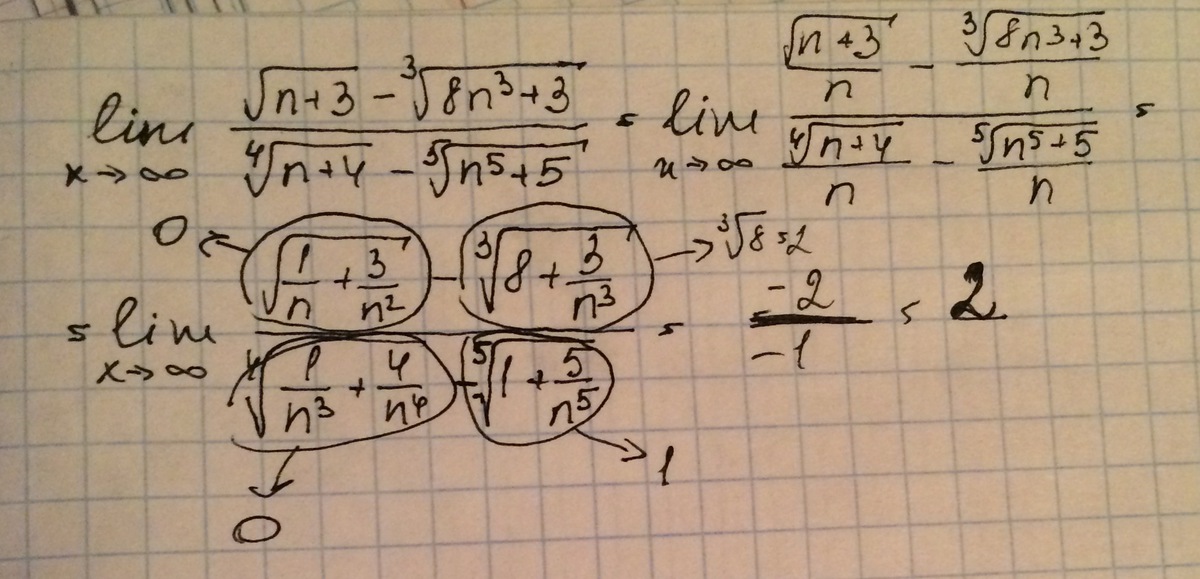 lim x→∞ (√(n+3) − ∛(8n³+3)) / (∜(n+4) − ⁵√(n⁵+5)) = lim x→∞ (√(n+3)/n − ∛(8n³+3)/n) / (∜(n+4)/n − ⁵√(n⁵+5)/n) =
0 ← √(1/n + 3/n²) → ∛8 = 2
= lim x→∞ (√(1/n + 3/n²) − ∛(8 + 3/n³)) / (∜(1/n³ + 4/n⁴) − ⁵√(1 + 5/n⁵)) = −2/−1 = 2
→ 1
0